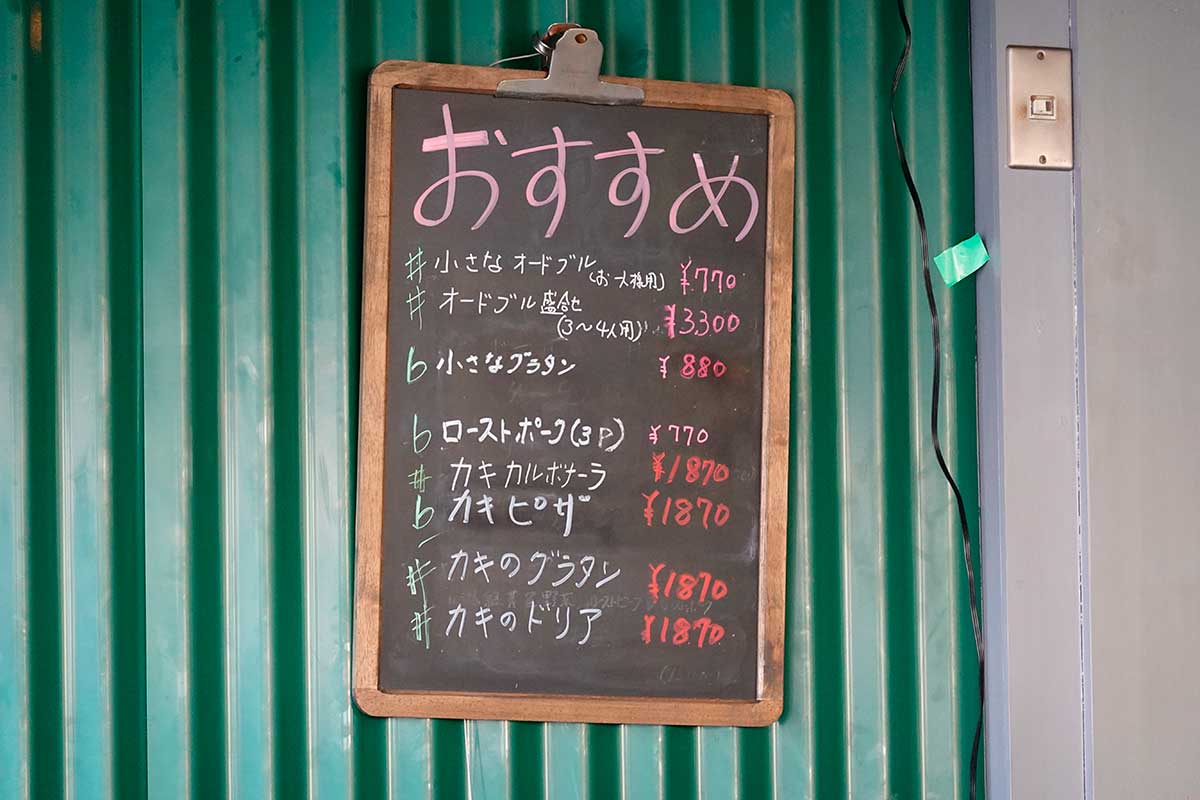 おすすめ
# 小さなオードブル(お一人様用) ¥770
# オードブル盛合せ
(3〜4人用) ¥3,300
b 小さなグラタン ¥880
b ローストポーク(3P) ¥770
# カキカルボナーラ ¥1870
b カキピザ ¥1870
# カキのグラタン ¥1870
# カキのドリア ¥1870